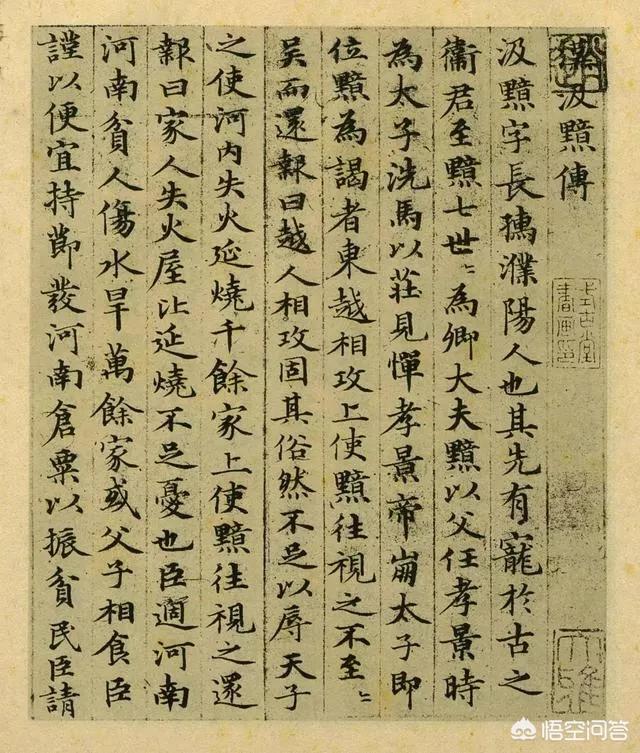 汲黯傳
汲黯字長孺濮陽人也其先有寵於古之
衛君至黯七世〻為卿大夫黯以父任孝景時
為太子洗馬以莊見憚孝景帝崩太子即
位黯為謁者東越相攻上使黯往視之不至〻
吳而還報曰越人相攻固其俗然不足以辱天子
之使河內失火延燒千餘家上使黯往視之還
報曰家人失火屋比延燒不足憂也臣適河南
河南貧人傷水旱萬餘家或父子相食臣
謹以便宜持節發河南倉粟以振貧民臣請
式古堂
書畫印
悟空问答